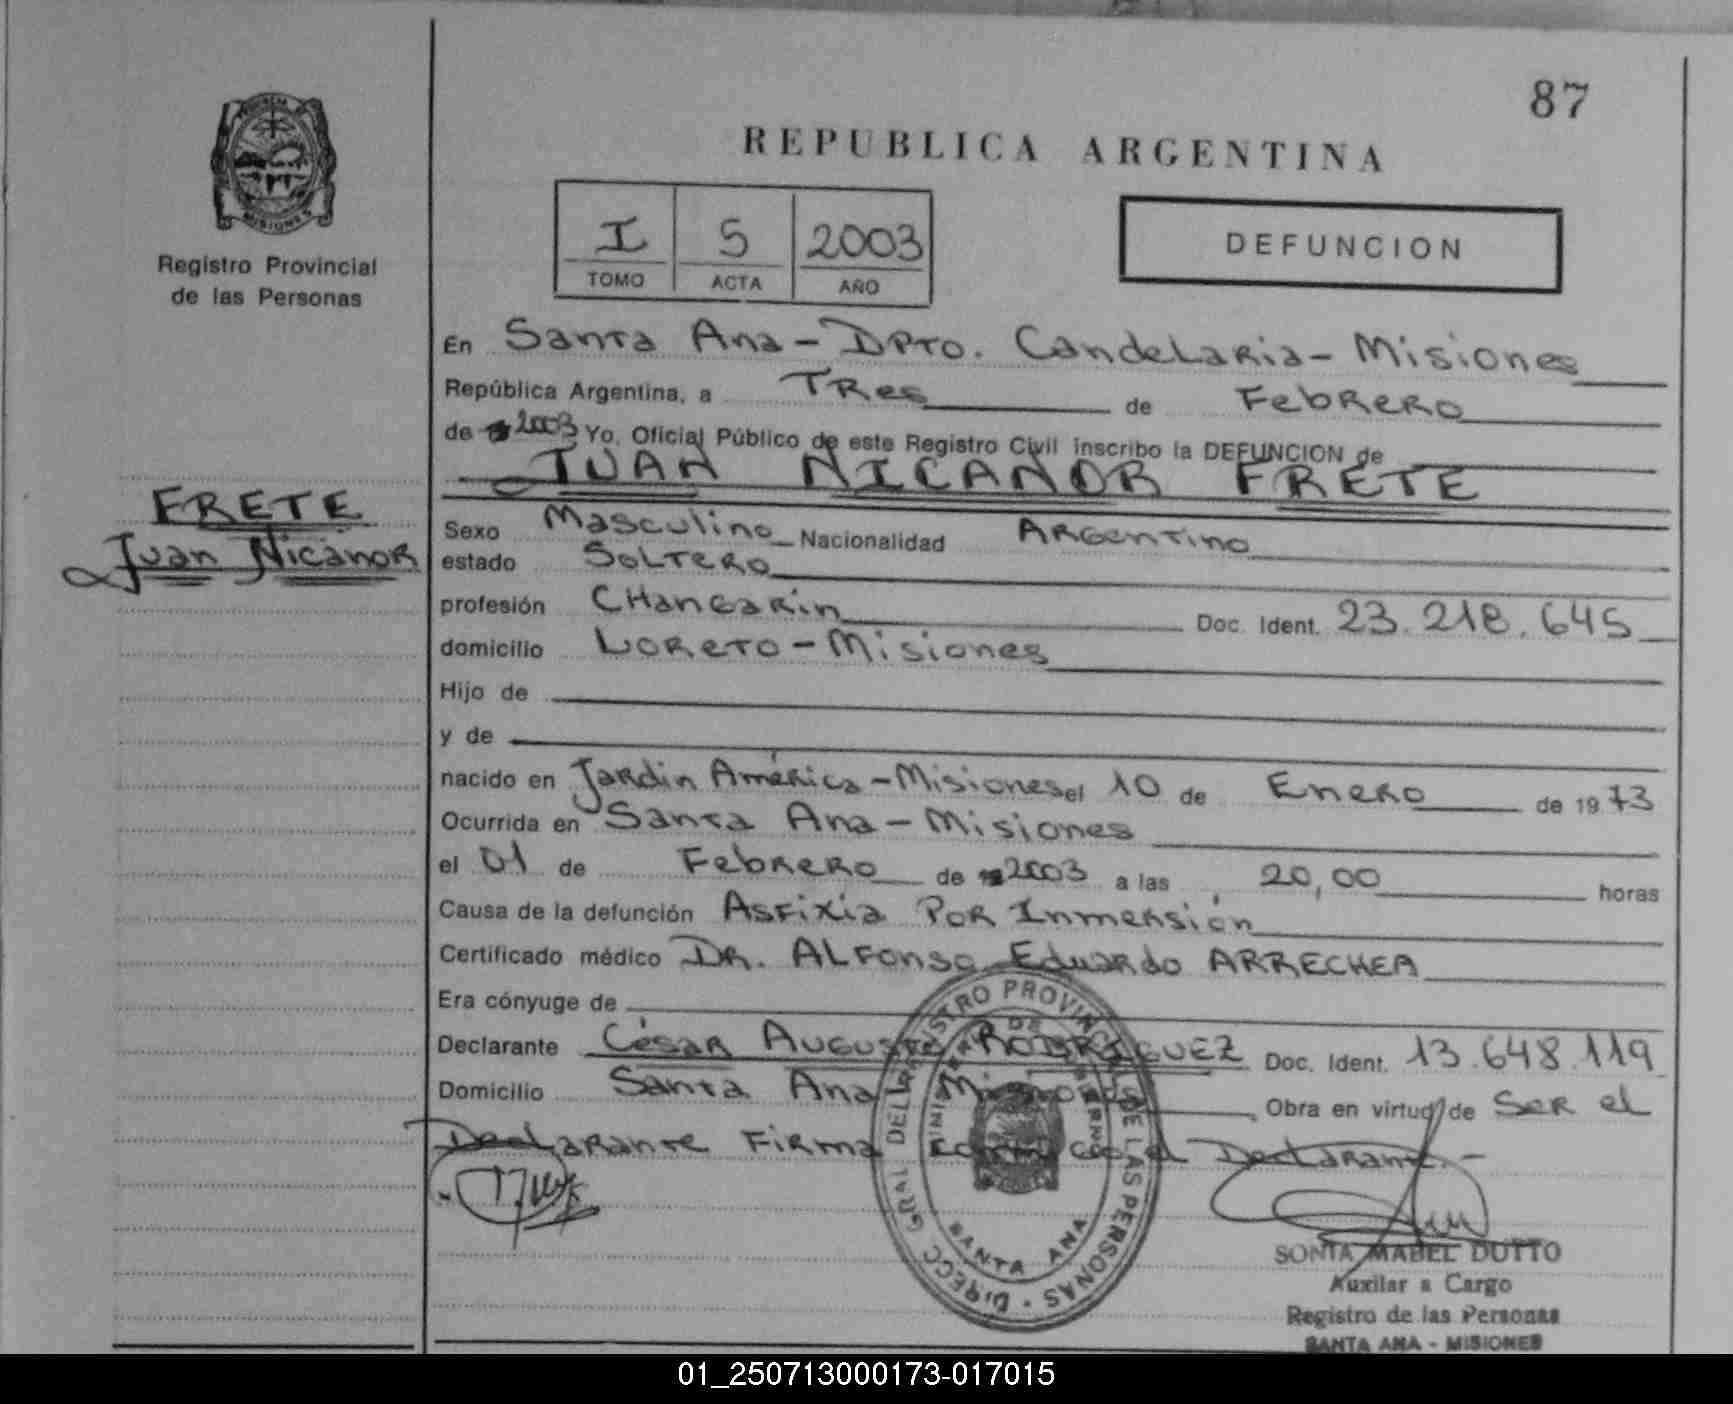 87
REPUBLICA ARGENTINA
PROVINCIA MISIONES
Registro Provincial
de las Personas
I 5 2003
TOMO ACTA AÑO
DEFUNCION
En Santa Ana - Dpto. Candelaria - Misiones
República Argentina, a Tres de Febrero
de 2003 Yo, Oficial Público de este Registro Civil inscribo la DEFUNCION de
JUAN NICANOR FRETE
FRETE
Juan Nicanor
Sexo Masculino Nacionalidad Argentino
estado Soltero
profesión Changarin Doc. Ident. 23.218.645
domicilio Loreto - Misiones
Hijo de
y de
nacido en Jardin América - Misiones el 10 de Enero de 1973
Ocurrida en Santa Ana - Misiones
el 01 de Febrero de 2003 a las 20,00 horas
Causa de la defunción Asfixia Por Inmersión
Certificado médico Dr. Alfonso Eduardo ARRECHEA
Era cónyuge de
Declarante César Augusto RODRIGUEZ Doc. Ident. 13.648.119
Domicilio Santa Ana Misiones Obra en virtud de Ser el
Declarante Firma Conmigo el Declarante.-
DIRECC GRAL DEL REGISTRO PROVINCIAL DE LAS PERSONAS
SANTA ANA
SONIA MABEL DUTTO
Auxilar a Cargo
Registro de las Personas
SANTA ANA - MISIONES
01_250713000173-017015